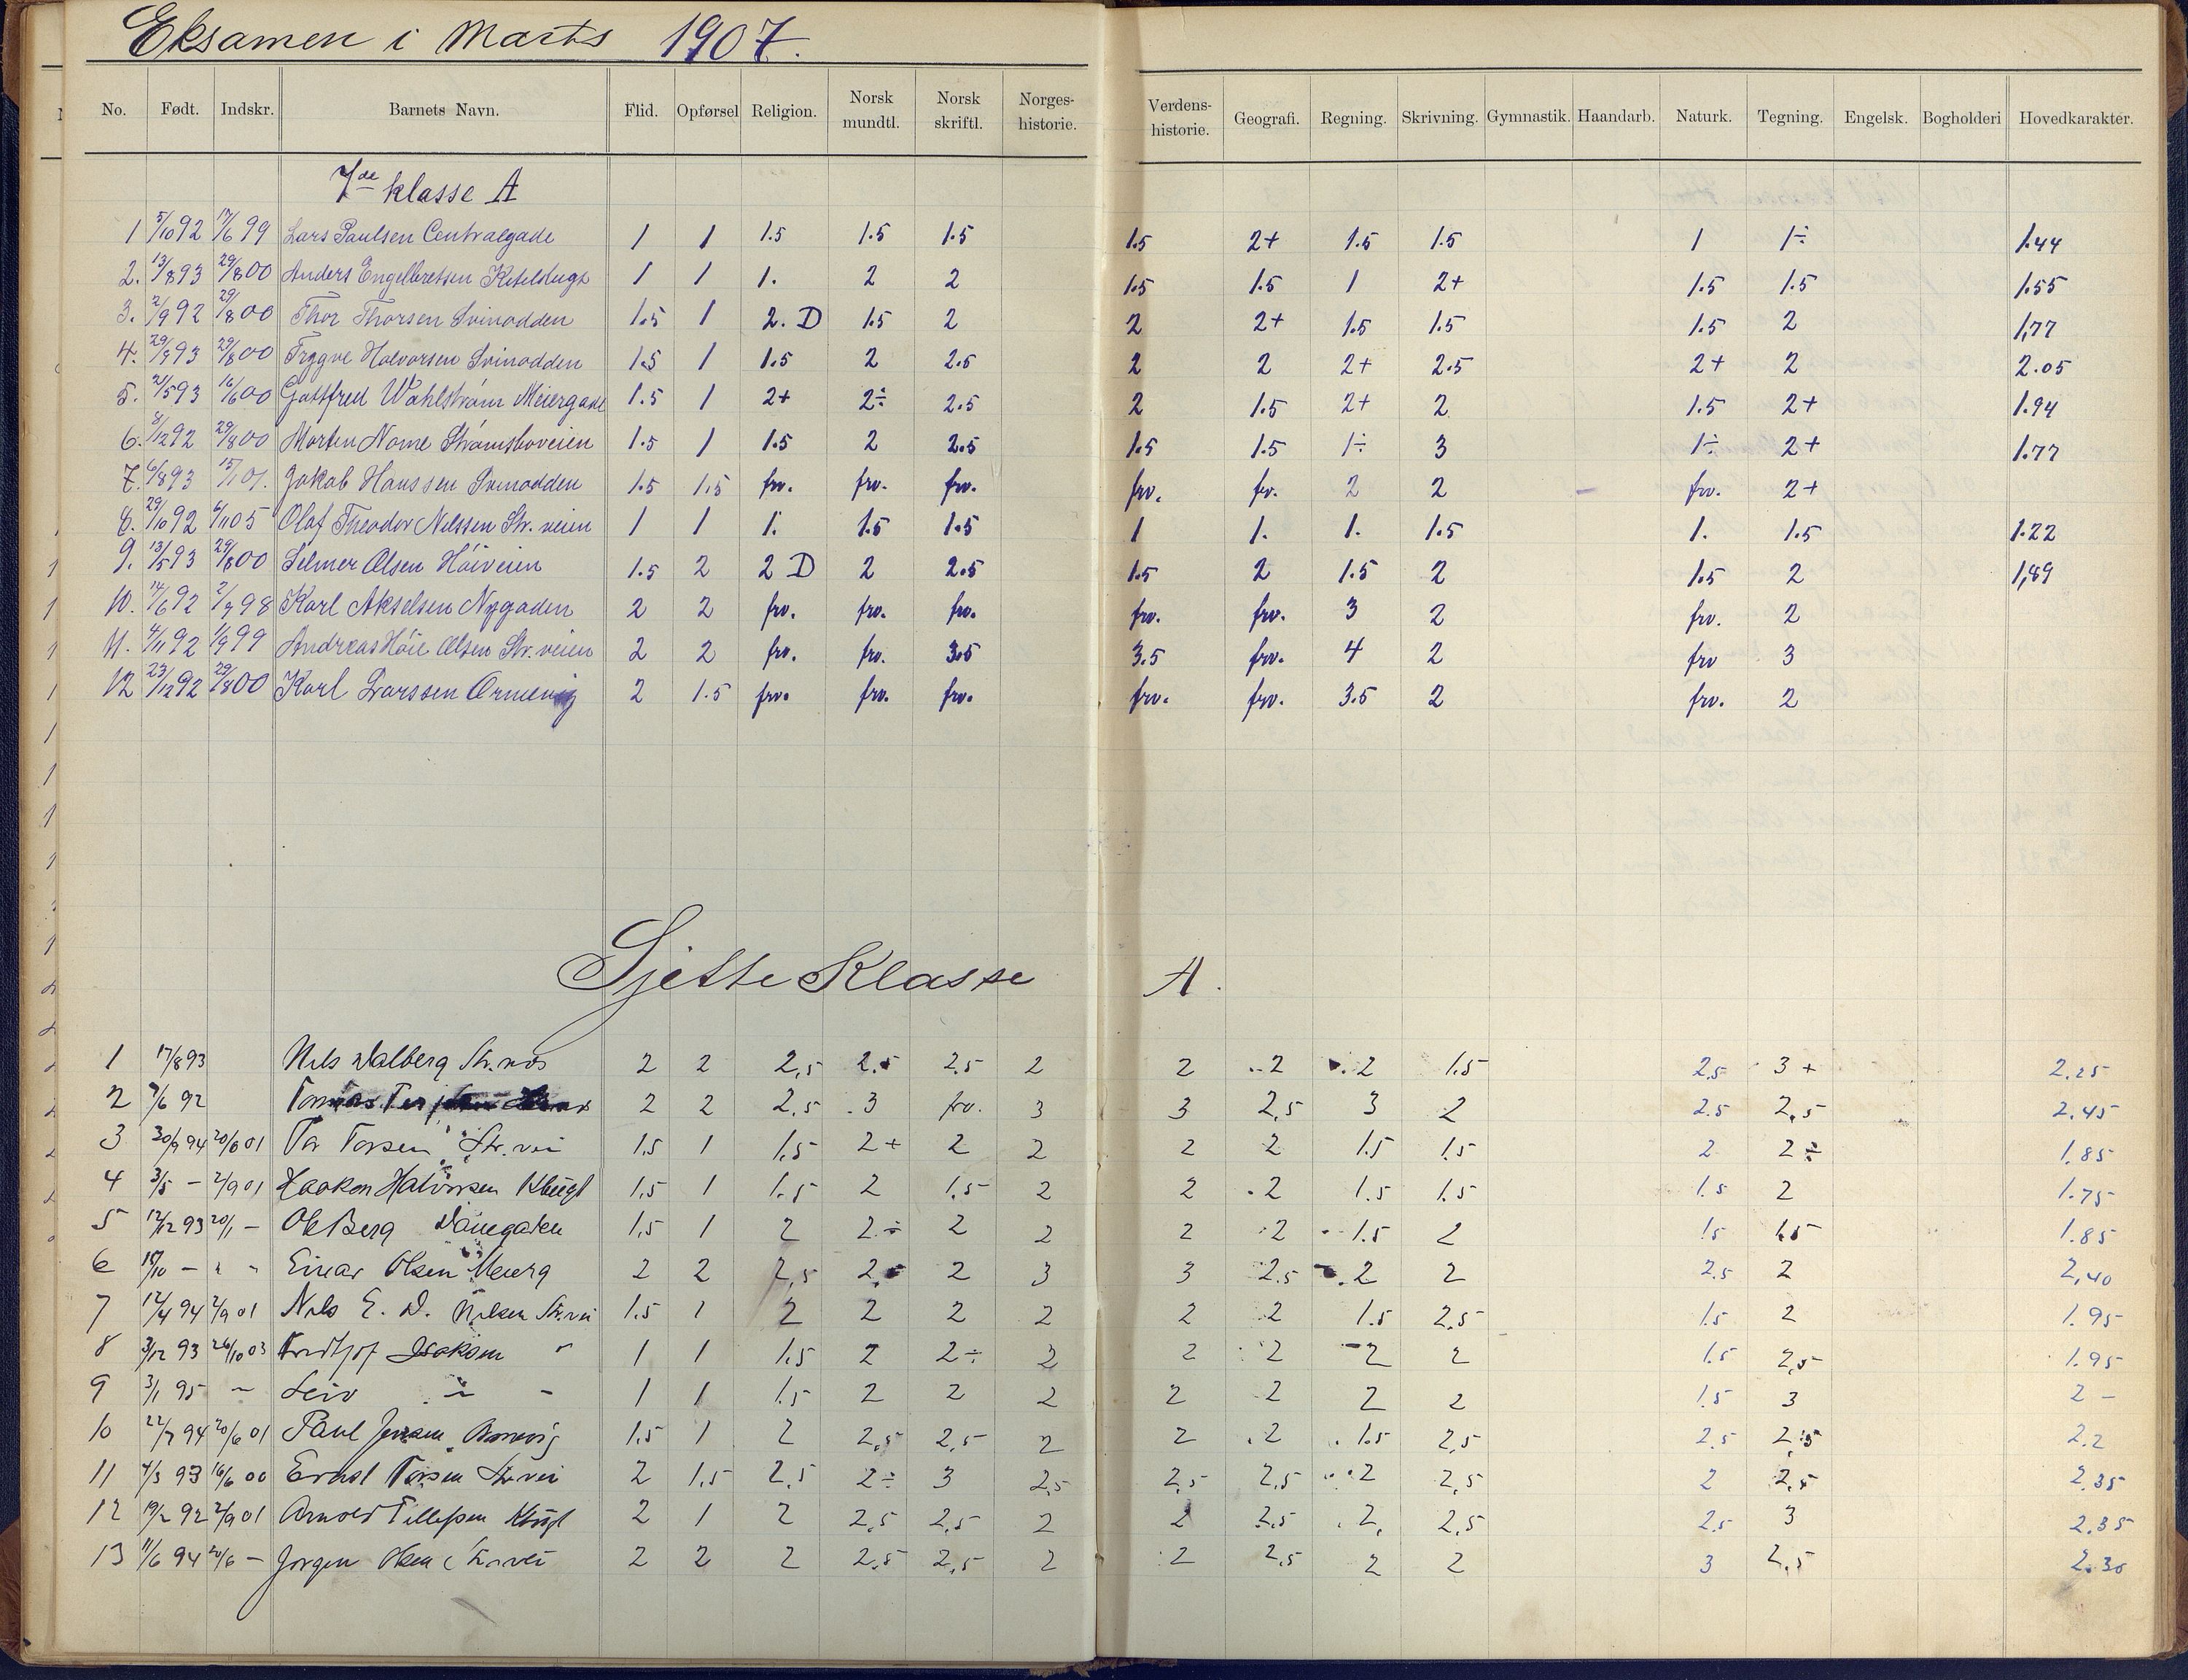 Eksamen i Marts 1907.
No. Født. Indskr. Barnets Navn. Flid. Opførsel Religion. Norsk mundtl. Norsk skriftl. Norges-historie. Verdens-historie. Geografi. Regning. Skrivning. Gymnastik. Haandarb. Naturk. Tegning. Engelsk. Bogholderi Hovedkarakter.
7de klasse A
1 5/10 92 17/6 99 Lars Paulsen Centralgade 1 1 1.5 1.5 1.5 1.5 2+ 1.5 1.5 1 1÷ 1.44
2. 13/8 93 29/8 00 Anders Engelbretsen 1 1 1. 2 2 1.5 1.5 1 2+ 1.5 1.5 1.55
3. 2/9 92 29/8 00 Thor Thorsen Svinodden 1.5 1 2. D 1.5 2 2 2+ 1.5 1.5 1.5 2 1,77
4. 29/9 93 29/8 00 Trygve Halvorsen Svinodden 1.5 1 1.5 2 2.5 2 2 2+ 2.5 2+ 2 2.05
5. 21/5 93 16/6 00 Gottfred Wahlstrøm Meiergade 1.5 1 2+ 2÷ 2.5 2 1.5 2+ 2 1.5 2+ 1.94
6. 8/12 92 29/8 00 Morten Nome Strømsboveien 1.5 1 1.5 2 2.5 1.5 1.5 1÷ 3 1÷ 2+ 1.77
7. 6/8 93 15/1 01. Jakob Hanssen Svinodden 1.5 1.5 frv. frv. frv. frv. fv. 2 2 frv. 2+
8. 29/10 92 6/11 05 Olaf Theodor Nilssen Str. veien 1 1 1. 1.5 1.5 1 1. 1. 1.5 1. 1.5 1.22
9. 13/5 93 29/8 00 Selmer Olsen Høiveien 1.5 2 2 D 2 2.5 1.5 2 1.5 2 1.5 2 1,89
10. 14/6 92 2/9 98 Karl Akselsen Nygaden 2 2 frv. frv. frv. frv. frv. 3 2 frv. 2
11. 4/11 92 1/9 99 Andreas Høie Olsen Str. veien 2 2 frv. frv. 3.5 3.5 frv. 4 2 frv 3
12 23/12 92 29/8 00 Karl Larssen Ormevig 2 1.5 frv. frv. frv. frv. frv. 3.5 2 frv. 2
Sjette Klasse A.
1 17/8 93 Nils Dalberg Str. 2 2 2,5 2.5 2.5 2 2 2 2 1.5 2.5 3+ 2.25
2 7/6 92 2 2 2,5 3 frv. 3 3 2,5 3 2 2.5 2,5 2.45
3 30/9 94 20/6 01 Tor Torsen Str. vei 1,5 1 1,5 2+ 2 2 2 2 1.5 1.5 2 2÷ 1.85
4 3/5 - 2/9 01 Haakon Halvorsen Kbugt 1,5 1 1.5 2 1,5 2 2 2 1.5 1.5 1.5 2 1.75
5 12/12 93 20/1 - Ole Berg 1,5 1 2 2÷ 2 2 2 2 1.5 2 1.5 1.5 1.85
6 18/10 - " - Einar Olsen Meierg 2 2 2,5 2 2 3 3 2.5 2 2 2.5 2 2,40
7 12/4 94 2/9 01 Nils E. D. Nilsen Str. vei 1.5 1 2 2 2 2 2 2 1.5 2.5 1.5 2 1.95
8 3/12 93 26/10 03 Fridtjof Isaksen " 1 1 1.5 2 2÷ 2 2 2 2 2 1.5 2,5 1.95
9 3/1 95 - Leiv " - 1 1 1.5 2 2 2 2 2 2 2 1.5 3 2 -
10 22/7 94 20/6 01 Paul Jensen 1.5 1 2 2,5 2,5 2 2 2 1.5 2,5 2.5 2.5 2.2
11 4/3 93 16/6 00 Ernst Torsen Str vei 2 1,5 2,5 2÷ 3 2,5 2,5 2,5 2 2,5 2 2,5 2.35
12 19/2 92 2/9 01 Arnold Tellefsen Kbugt 2 1 2 2,5 2,5 2 2 2,5 2, 2,5 2.5 3 2.35
13 11/6 94 20/6 - Jørgen Olsen Str vei 2 2 2 2.5 2,5 2 2 2,5 2 2 3 2.5 2.30